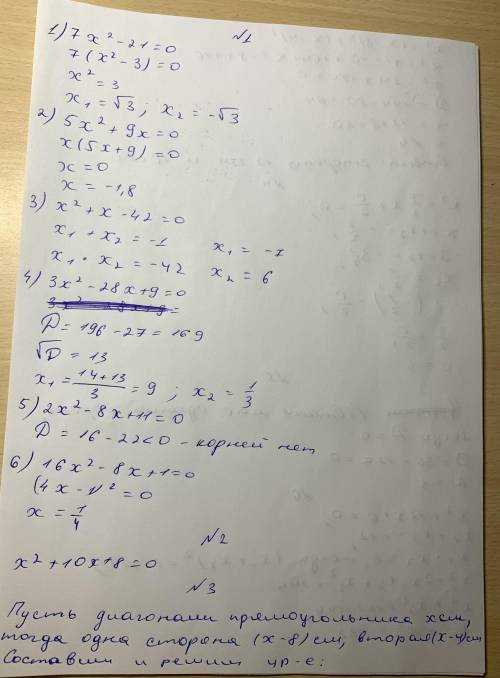 №1
1) 7x² - 21 = 0
7(x² - 3) = 0
x² = 3
x₁ = √3 ; x₂ = -√3
2) 5x² + 9x = 0
x(5x + 9) = 0
x = 0
x = -1,8
3) x² + x - 42 = 0
x₁ + x₂ = -1 x₁ = -7
x₁ · x₂ = -42 x₂ = 6
4) 3x² - 28x + 9 = 0
D = 196 - 27 = 169
√D = 13
x₁ = (14+13)/3 = 9 ; x₂ = 1/3
5) 2x² - 8x + 11 = 0
D = 16 - 22 < 0 - корней нет
6) 16x² - 8x + 1 = 0
(4x - 1)² = 0
x = 1/4
№2
x² + 10x + 8 = 0
№3
Пусть диагонали прямоугольника x см,
тогда одна сторона (x-8) см, вторая (x-4) см
Составим и решим ур-е: